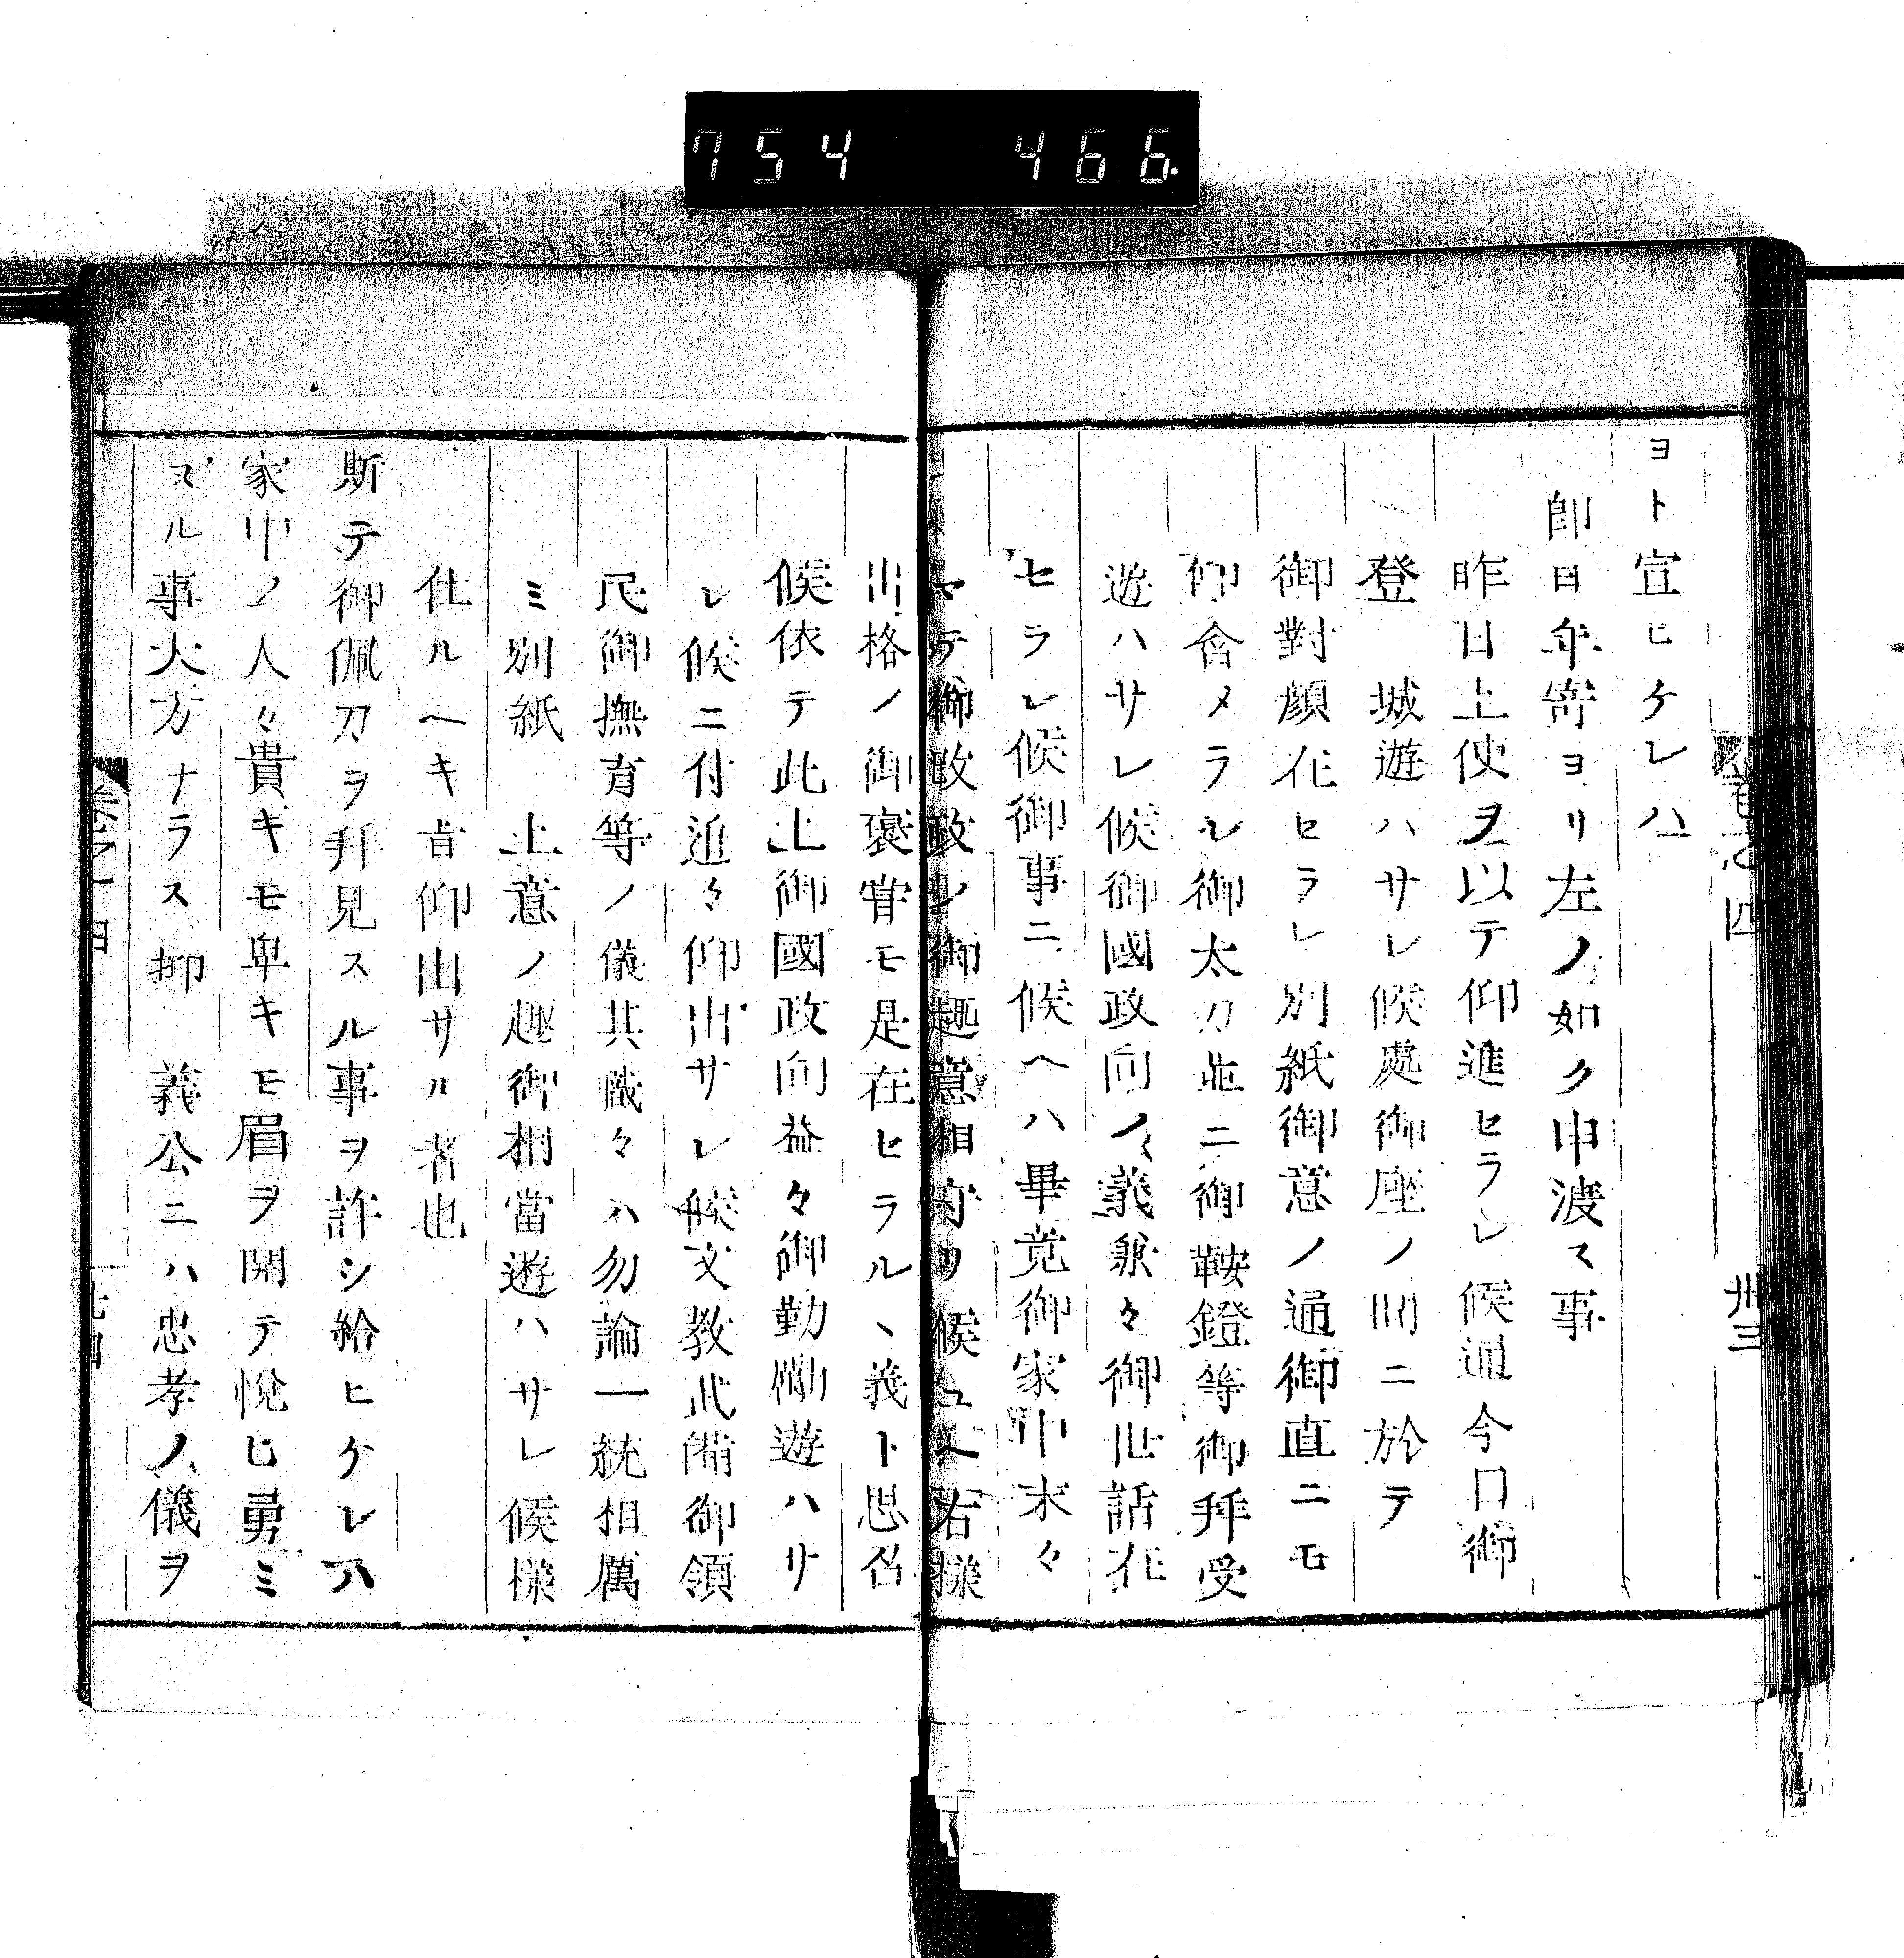 754 466
卷之四 卅三
ヨト宣ヒケレハ
即日年寄ヨリ左ノ如ク申渡ス事
昨日上使ヲ以テ仰進セラレ候通今日御
登 城遊ハサレ候處御座ノ間ニ於テ
御對顔在セラレ別紙御意ノ通御直ニモ
仰含メラレ御太刀並ニ御鞍鐙等御拜受
遊ハサレ候御國政向ノ義兼々御世話在
セラレ候御事ニ候ヘハ畢竟御家中末々
マテ御改政ノ御趣意相守リ候ユヘ右樣
出格ノ御褒賞モ是在セラルヽ義ト思召
候依テ此上御國政向益々御勤勵遊ハサ
レ候ニ付追々仰出サレ候文教武備御領
民御撫育等ノ儀其職々ハ勿論一統相厲
ミ別紙 上意ノ趣御相當遊ハサレ候樣
仕ルヘキ旨仰出サル者也
斯テ御佩刀ヲ拜見スル事ヲ許シ給ヒケレハ
家中ノ人々貴キモ卑キモ眉ヲ開テ悅ヒ勇ミ
ヌル事大方ナラス抑 義公ニハ忠孝ノ儀ヲ